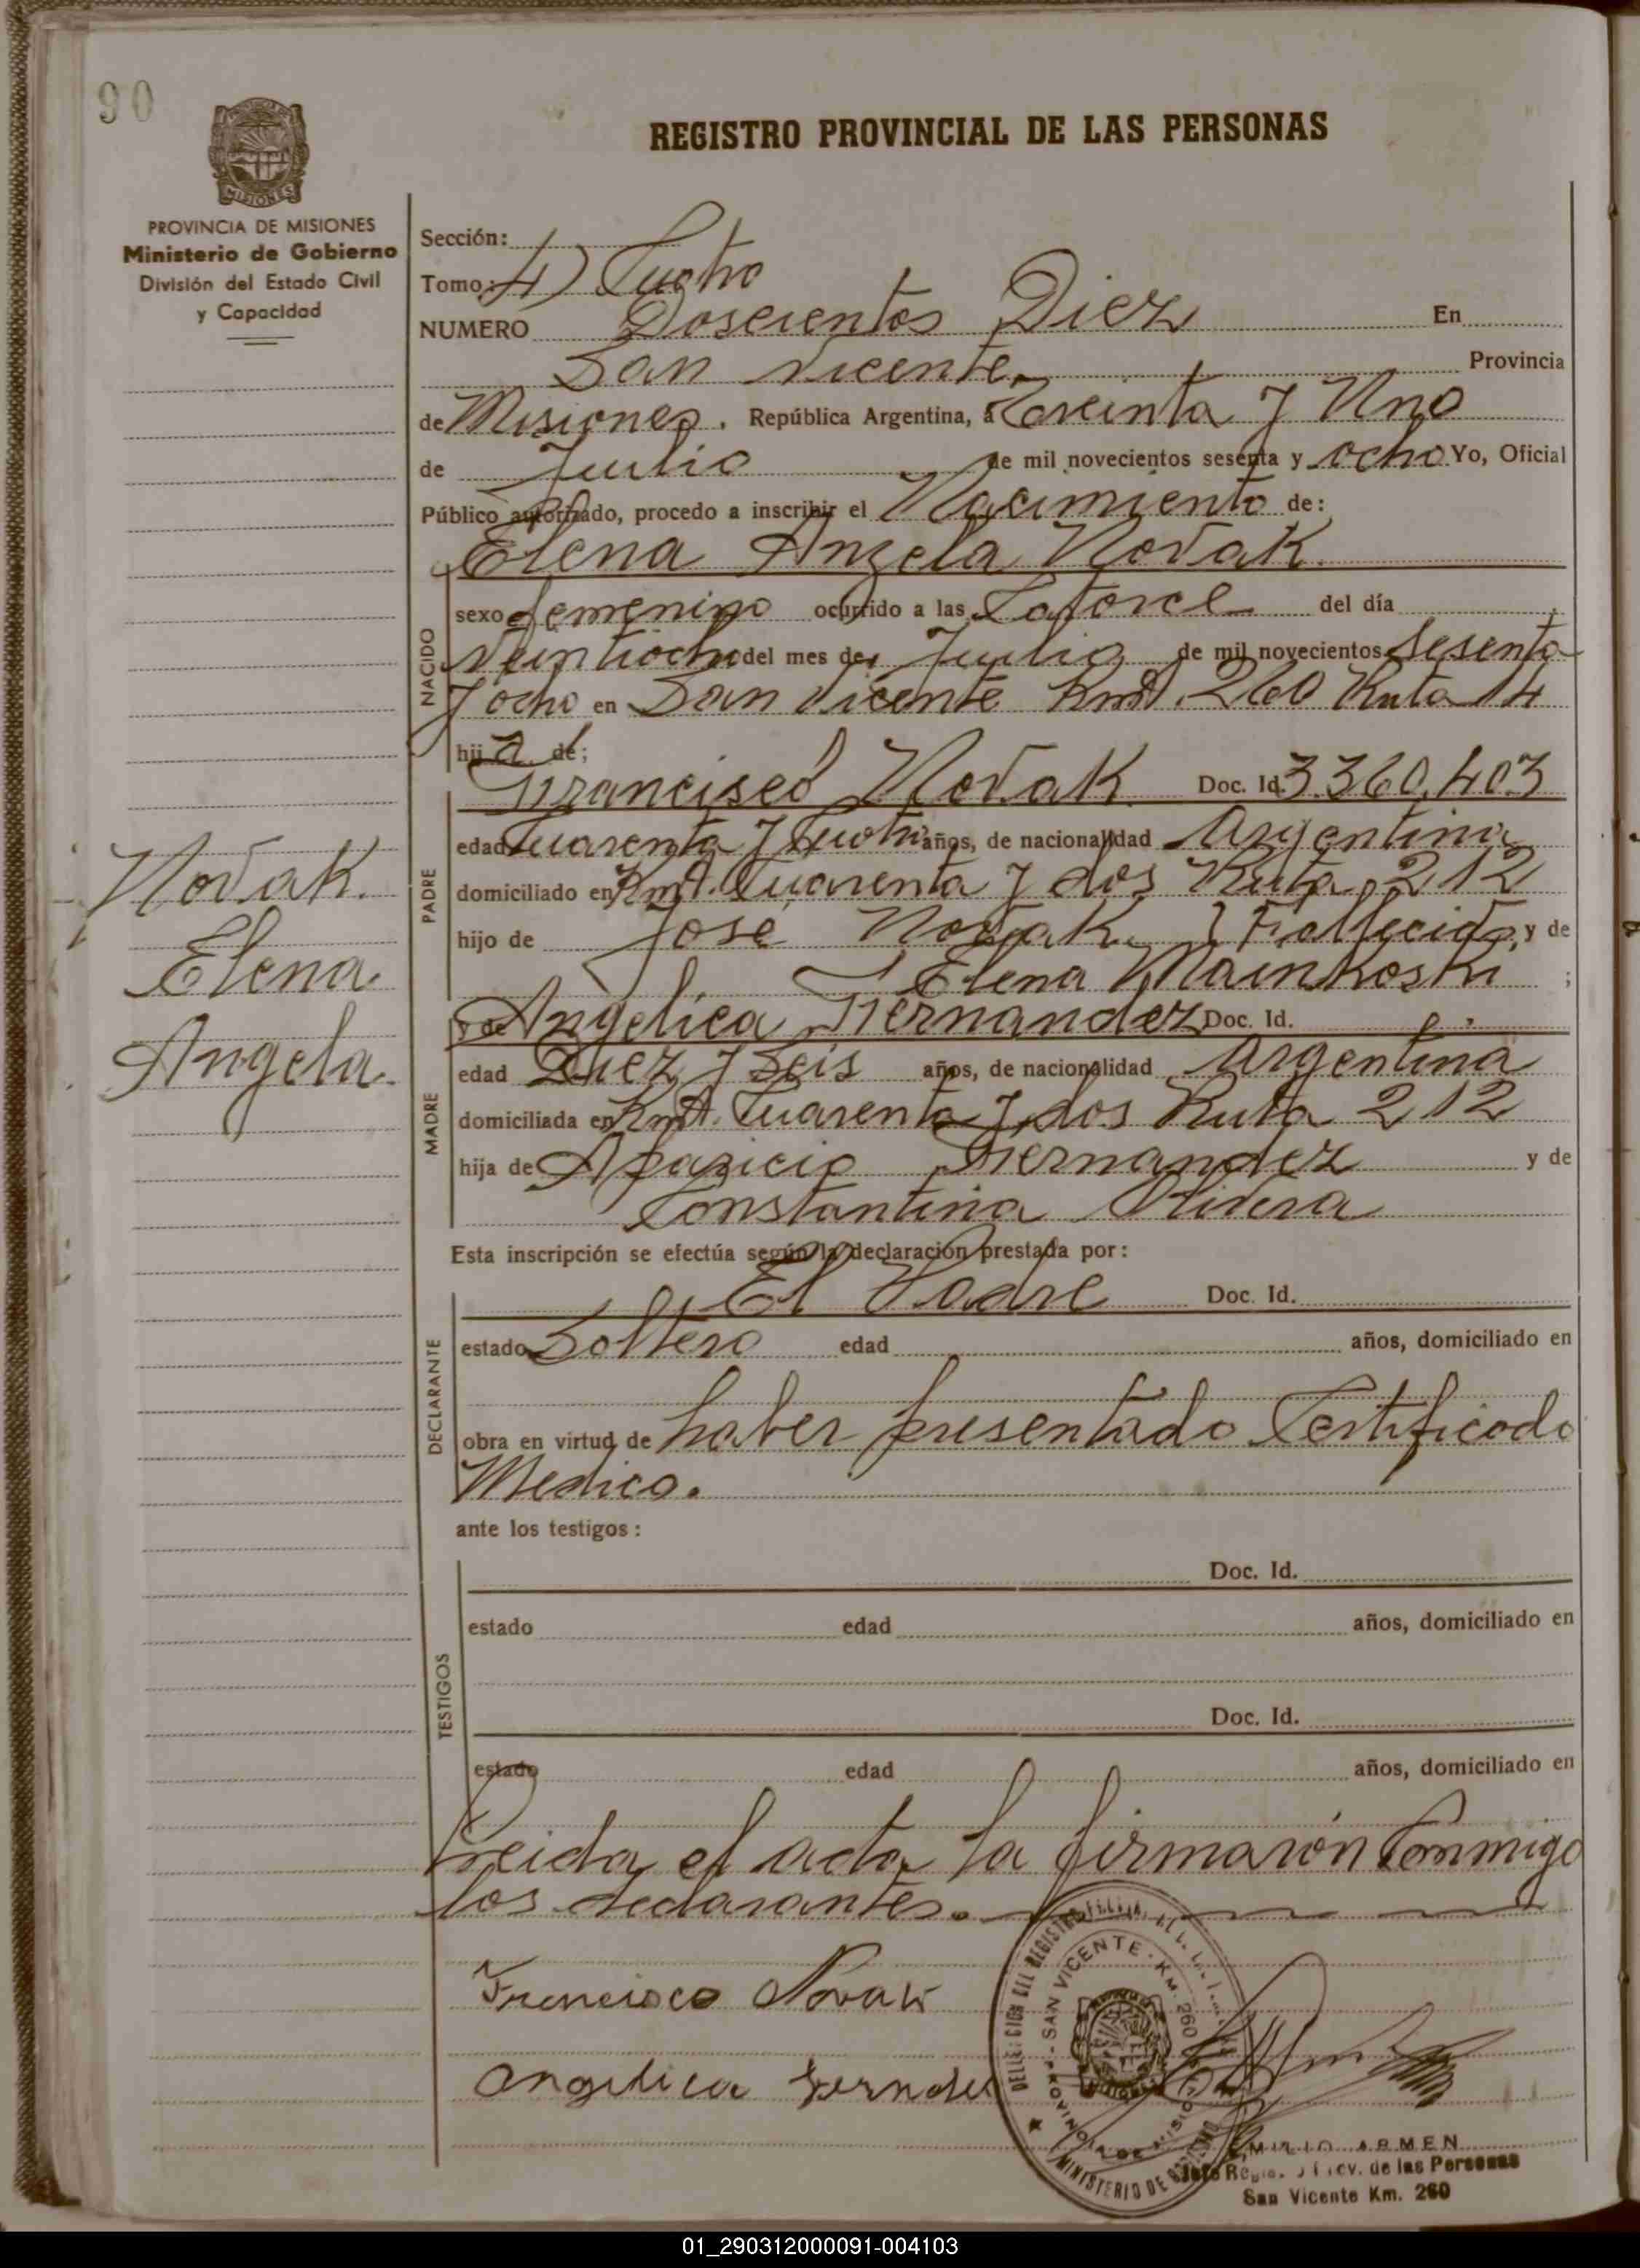 90
REGISTRO PROVINCIAL DE LAS PERSONAS
MISIONES
PROVINCIA DE MISIONES
Ministerio de Gobierno
División del Estado Civil
y Capacidad
Sección:
Tomo: 4) Cuatro
NUMERO Doscientos Diez En
San Vicente. Provincia
de Misiones. República Argentina, a Treinta y Uno
de Julio de mil novecientos sesenta y ocho Yo, Oficial
Público autorizado, procedo a inscribir el Nacimiento de:
Elena Angela Novak.
NACIDO
sexo femenino ocurrido a las Catorce del día
Veintiocho del mes de Julio de mil novecientos Sesenta
y ocho en San Vicente Kmt. 260 Ruta 14
hija de;
Francisco Novak Doc. Id. 3.360.403
PADRE
edad Cuarenta y Cuatro años, de nacionalidad Argentina
domiciliado en Kmt. Cuarenta y dos Ruta 212
hijo de José Novak. Fallecido, y de
Elena Mainkoski ;
y de Angelica Fernandez Doc. Id.
MADRE
edad Diez y Seis años, de nacionalidad Argentina
domiciliada en Kmt. Cuarenta y dos Ruta 212
hija de Aparicio Fernandez y de
Constantina Rivera
Novak.
Elena
Angela.
Esta inscripción se efectúa según la declaración prestada por:
El Padre Doc. Id.
DECLARANTE
estado Soltero edad años, domiciliado en
obra en virtud de haber presentado Certificado
Medico.
ante los testigos:
TESTIGOS
Doc. Id.
estado edad años, domiciliado en
Doc. Id.
estado edad años, domiciliado en
Leida el acta la firmarón Conmigo
los declarantes.
Francisco Novak
Angelica
SAN VICENTE - KM. 260
MINISTERIO DE GOBIERNO
EMILIO ARMEN
Jefe Regis. Prov. de las Personas
San Vicente Km. 260
01_290312000091-004103